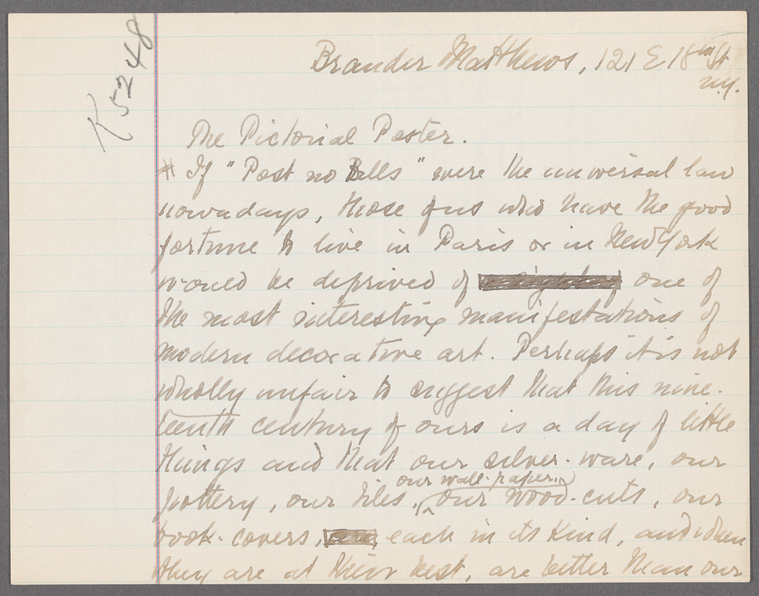 K5248
Brander Matthews, 121 E 18th St
N.Y.
The Pictorial Poster.
# If "Post no Bills" were the universal law
nowadays, those of us who have the good
fortune to live in Paris or in New York
would be deprived of one of
the most interesting manifestations of
modern decorative art. Perhaps it is not
wholly unfair to suggest that this nine-
teenth century of ours is a day of little
things and that our silver-ware, our
our wall-papers,
pottery, our tiles, our wood-cuts, our
book-covers, each in its kind, and when
they are at their best, are better than our